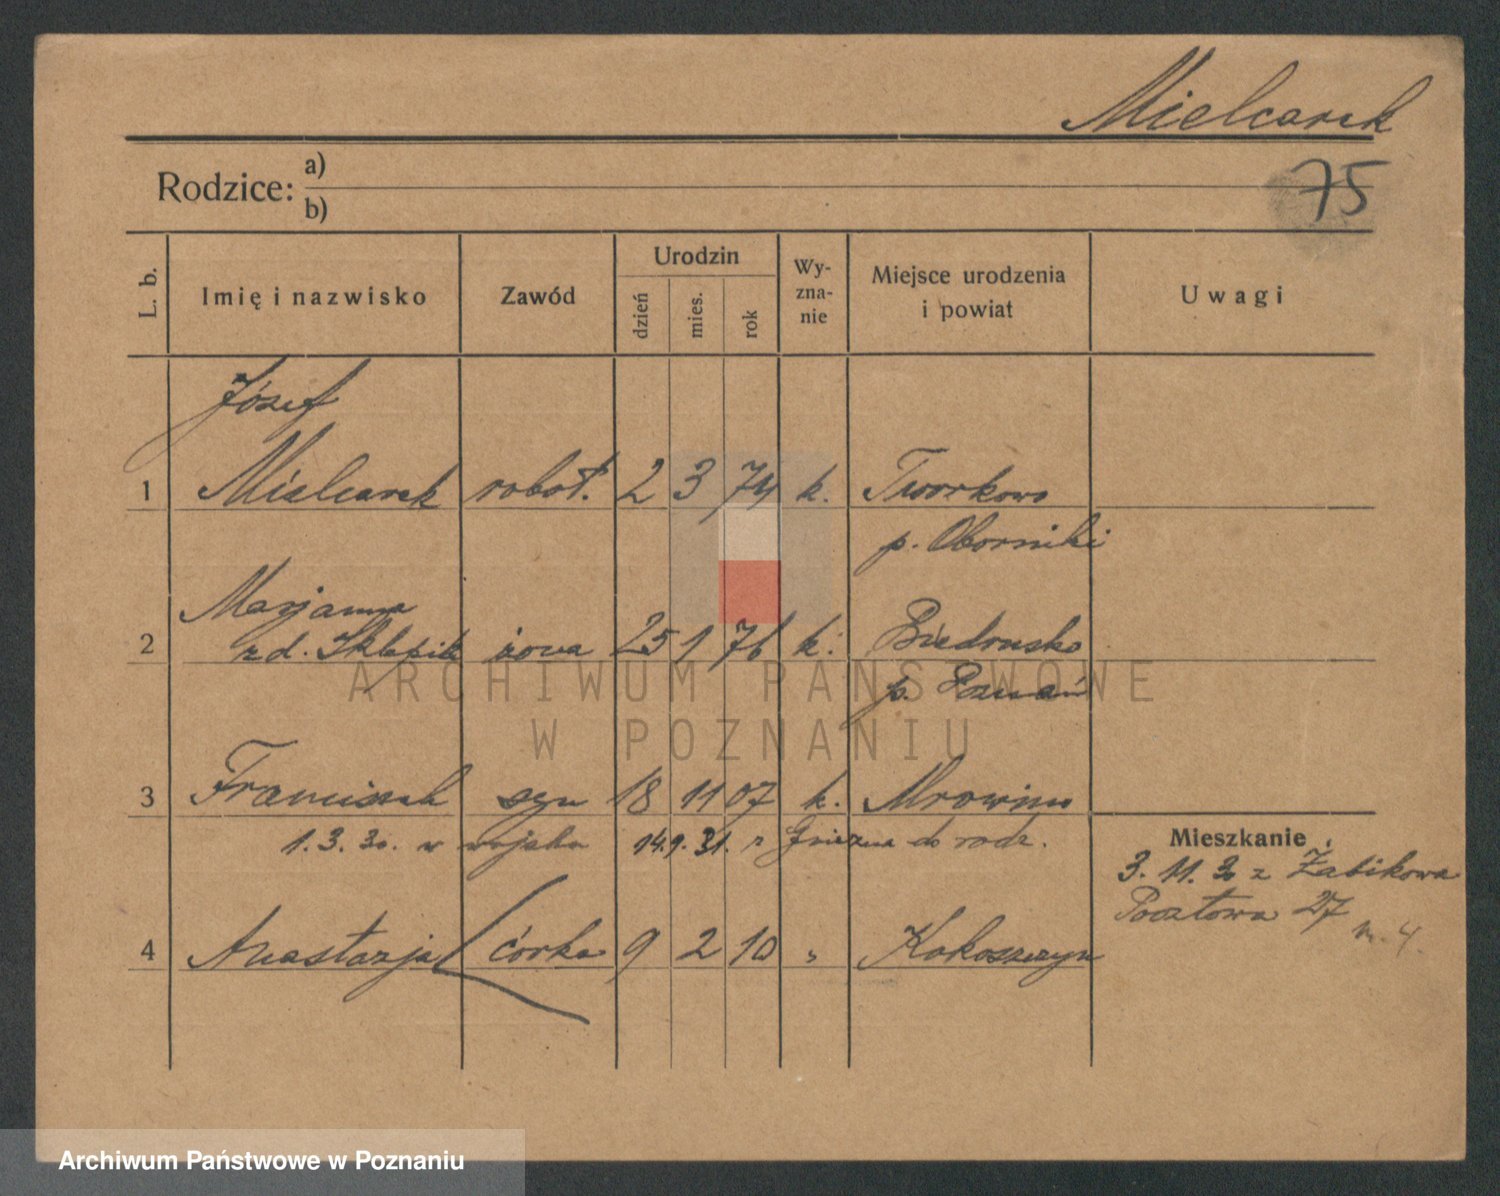 Mielcarek
75
Rodzice: a)
b)
L. b. Imię i nazwisko Zawód Urodzin dzień mies. rok Wy-zna-nie Miejsce urodzenia i powiat Uwagi
Józef
1 Mielcarek robot. 2 3 74 k. Tworkowo
p. Oborniki
Marjanna
2 zd. żowa 25 1 76 k. Biedrusko
p. Poznań
3 Franciszek syn 18 11 07 k. Mrowino
1. 3. 30. w wojsku 14.9.31. z Gniezna do rodz.
Mieszkanie
3. 11. 30 z Żabikowa
Pocztowa 27
m. 4.
4 Anastazja córka 9 2 10 " Kokoszczyn
ARCHIWUM PAŃSTWOWE
W POZNANIU
Archiwum Państwowe w Poznaniu